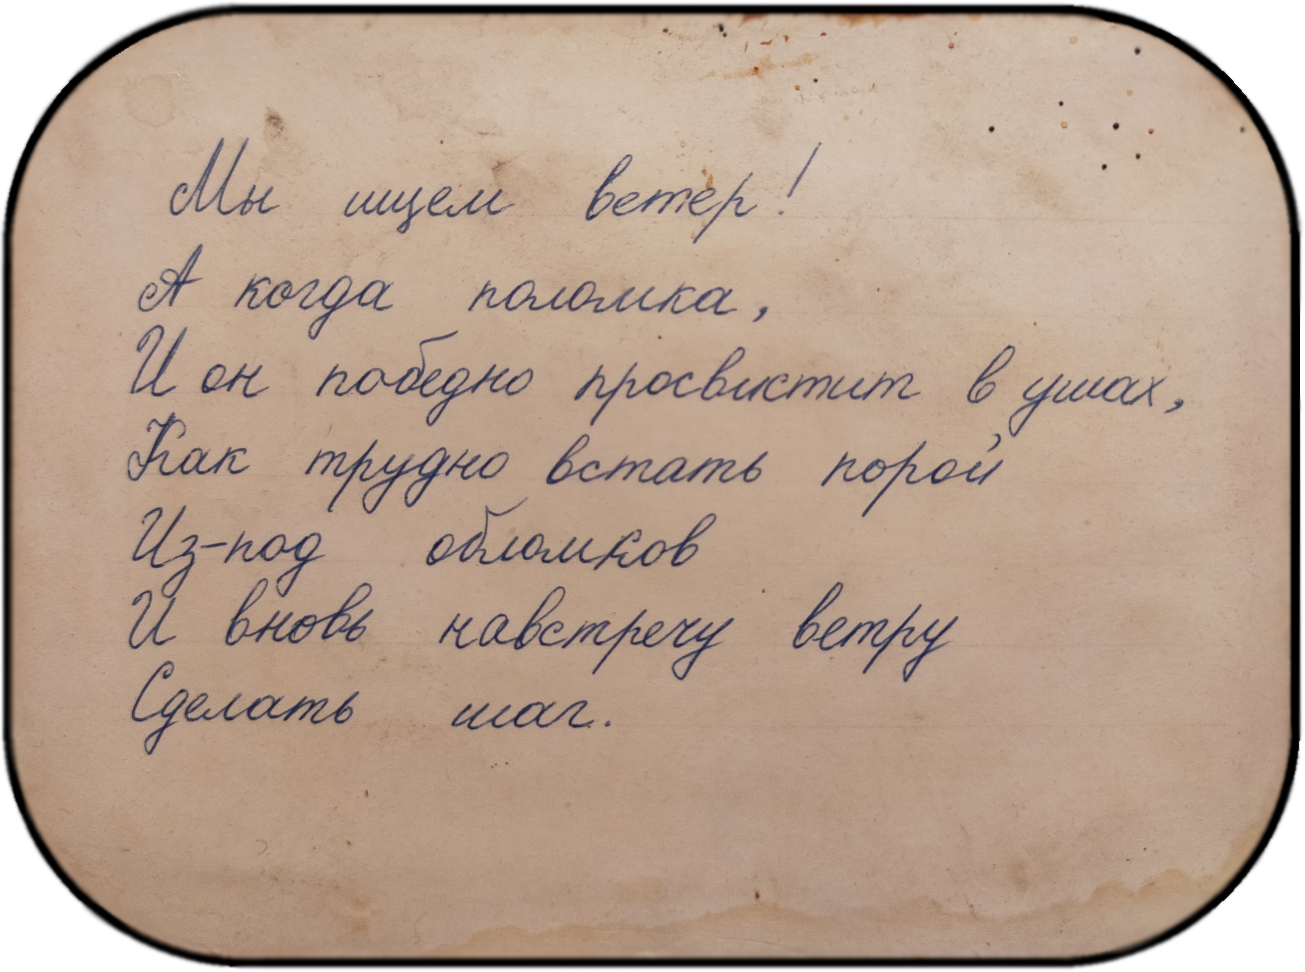 Мы ищем ветер!
А когда поломка,
И он победно просвистит в ушах,
Как трудно встать порой
Из-под обломков
И вновь навстречу ветру
Сделать шаг.